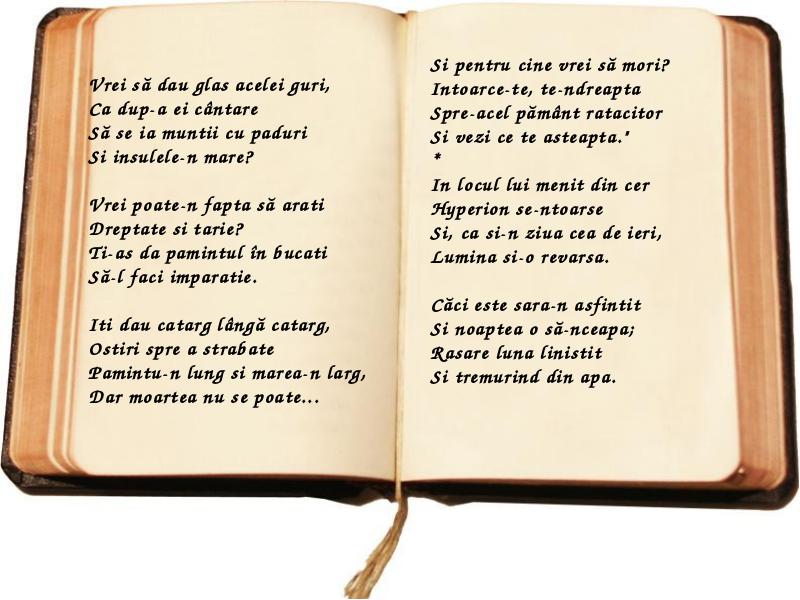 Vrei să dau glas acelei guri,
Ca dup-a ei cântare
Să se ia muntii cu paduri
Si insulele-n mare?

Vrei poate-n fapta să arati
Dreptate si tarie?
Ti-as da pamintul în bucati
Să-l faci imparatie.

Iti dau catarg lângă catarg,
Ostiri spre a strabate
Pamintu-n lung si marea-n larg,
Dar moartea nu se poate...

Si pentru cine vrei să mori?
Intoarce-te, te-ndreapta
Spre-acel pământ ratacitor
Si vezi ce te asteapta."
*
In locul lui menit din cer
Hyperion se-ntoarse
Si, ca si-n ziua cea de ieri,
Lumina si-o revarsa.

Căci este sara-n asfintit
Si noaptea o să-nceapa;
Rasare luna linistit
Si tremurind din apa.